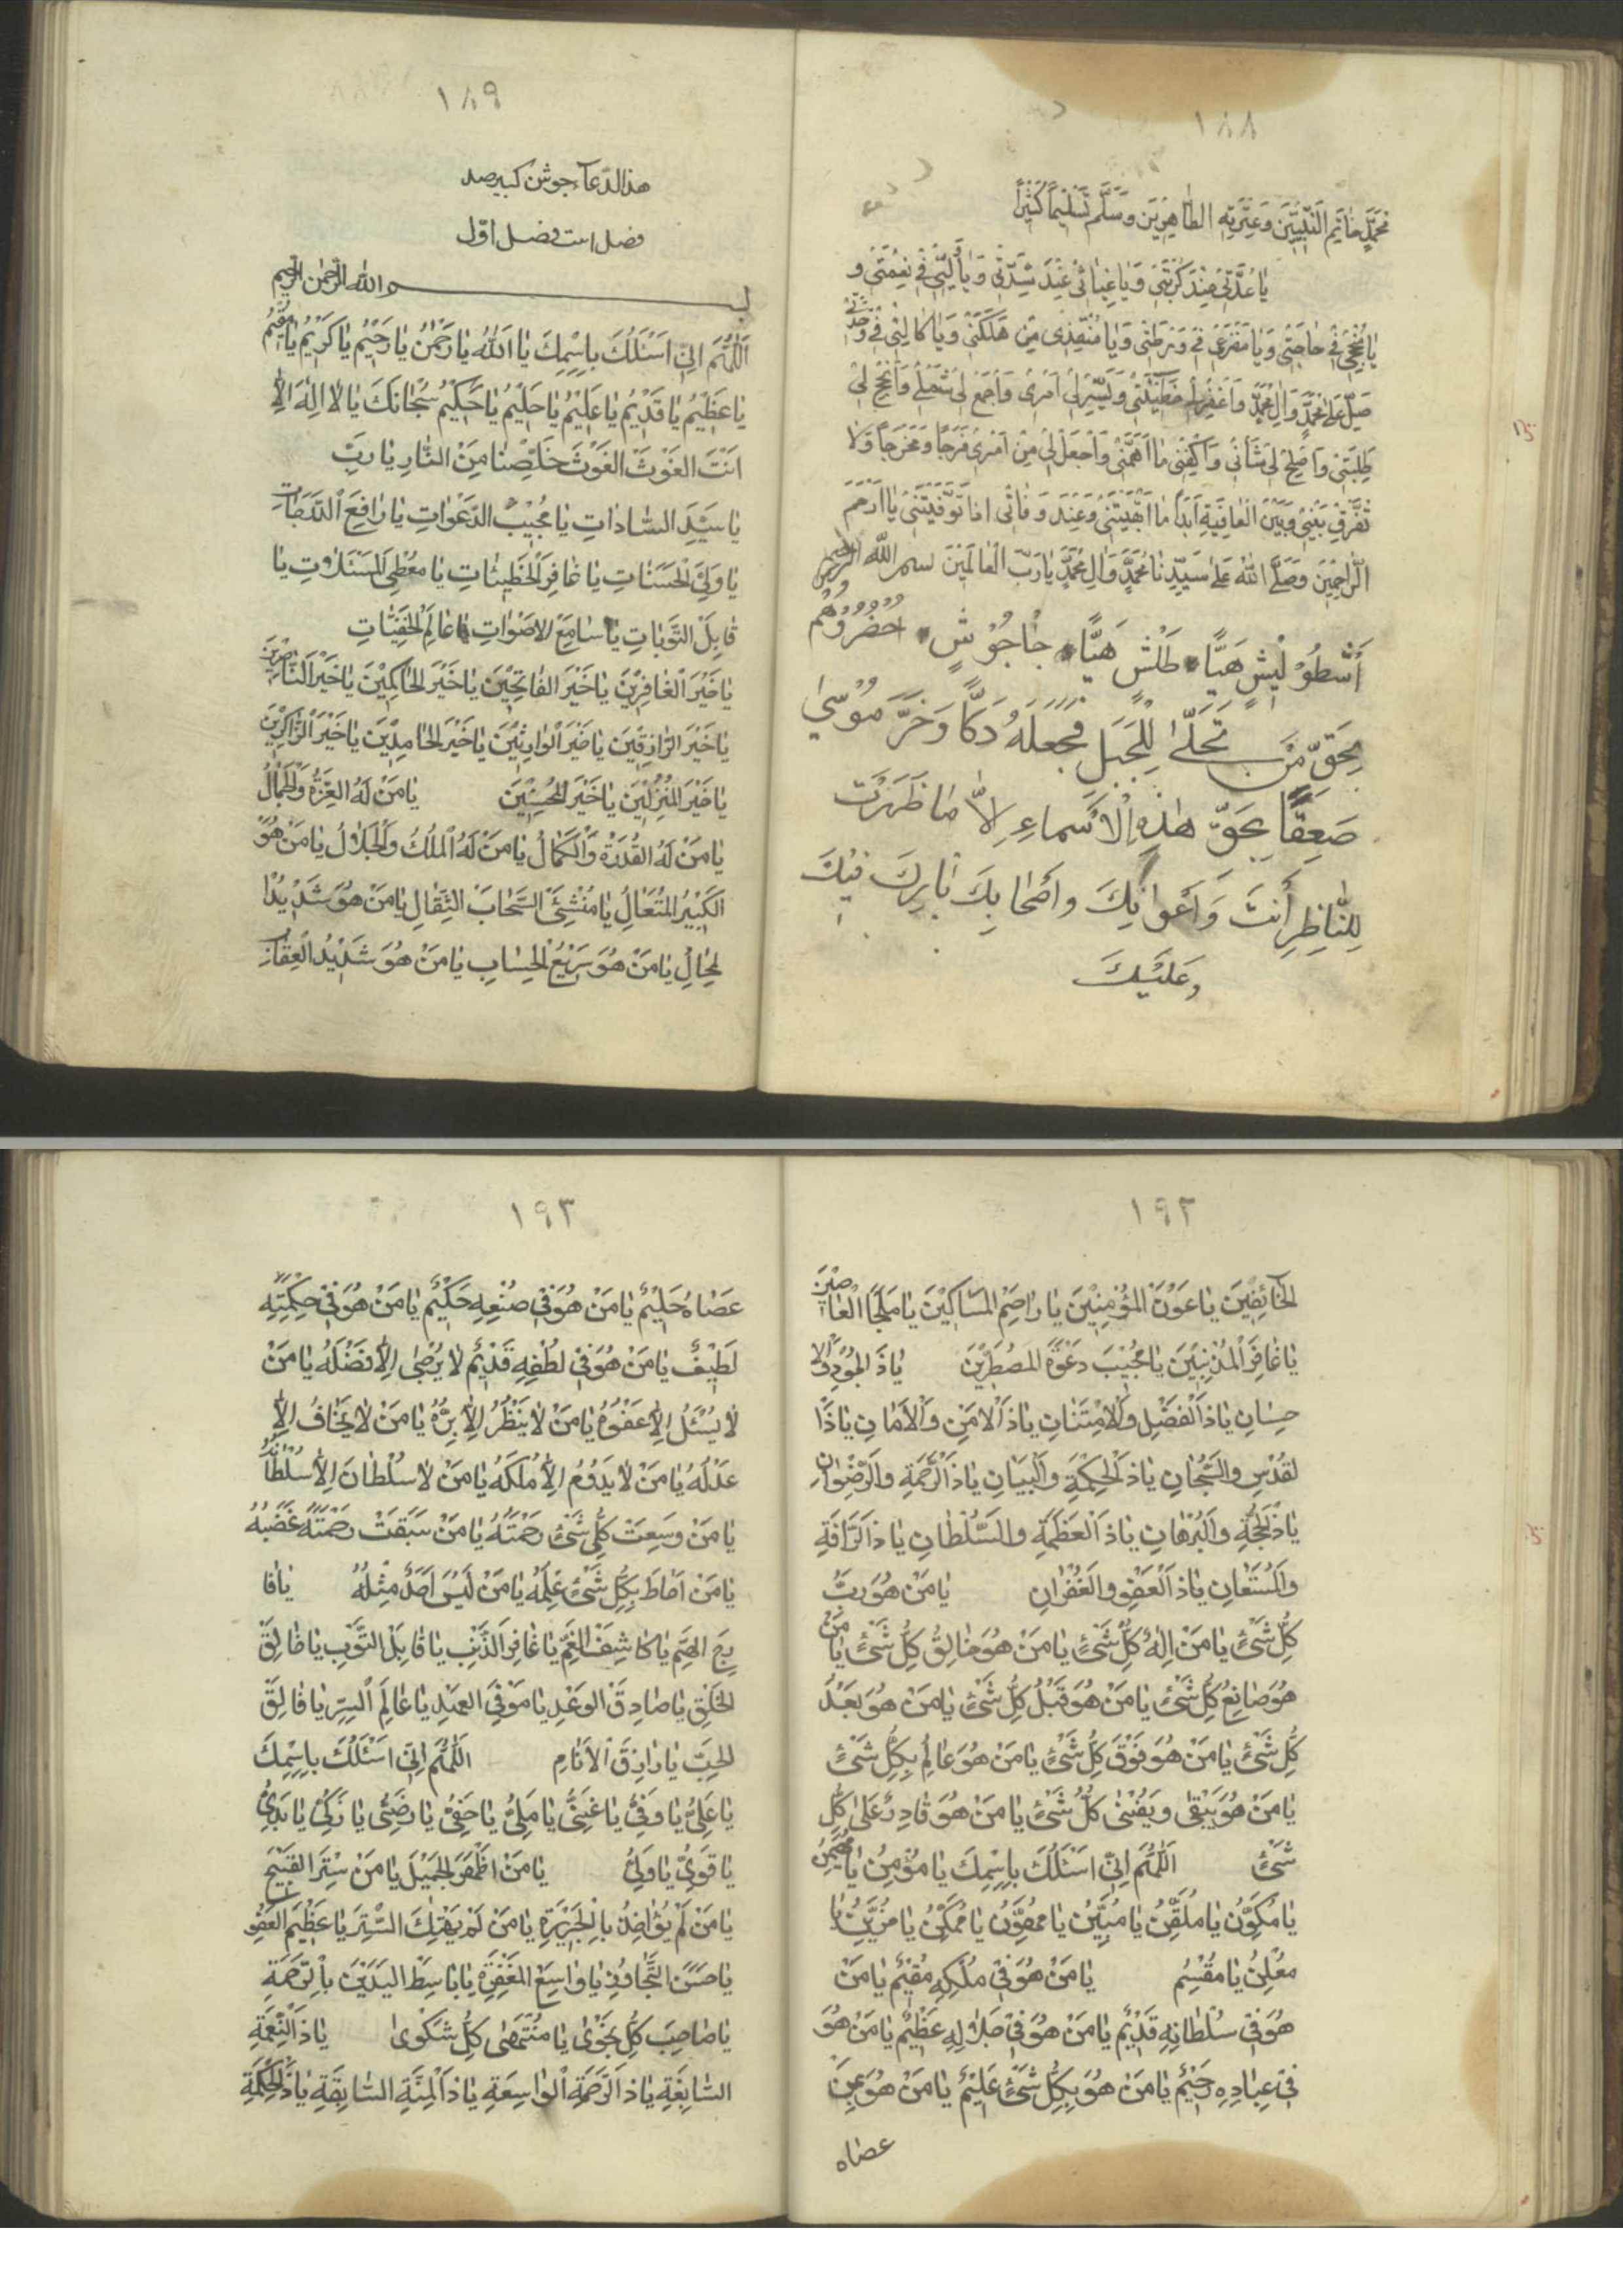 ١٨٨
محمد خاتم النبيين وعترته الطاهرين وسلم تسليماً كثيراً
يا عدتي عند كربتي ويا غياثي عند شدتي ويا وليي في نعمتي و
يا منجحي في حاجتي ويا مفزعي في ورطتي ويا منقذي من هلكتي ويا كالئي في وحدتي
صل على محمد وال محمد واغفر لي خطيئتي ويسر لي امري واجمع لي شملي وانجح لي
طلبتي واصلح لي شأني واكفني ما اهمني واجعل لي من امري فرجاً ومخرجاً ولا
تفرق بيني وبين العافية ابداً ما ابقيتني وعند وفاتي اذا توفيتني يا ارحم
الراحمين وصلى الله على سيدنا محمد وال محمد يا رب العالمين بسم الله الرحمن الرحيم
أشطوليش هيّا طلش هيّا جاجوش احضروهم
بحق من تجلى للجبل فجعله دكاً وخر موسى
صعقاً بحق هذه الاسماء إلا ما ظهرت
للناظر أنت وأعوانك وأصحابك بارك فيك
وعليك
١٨٩
هذا الدعآء جوشن كبير صد
فصل است فصل اوّل
بسم الله الرحمن الرحيم
اللهم اني اسئلك باسمك يا الله يا رحمن يا رحيم يا كريم يا مقيم
يا عظيم يا قديم يا عليم يا حليم يا حكيم سبحانك يا لا اله الا
انت الغوث الغوث خلصنا من النار يا رب
يا سيد السادات يا مجيب الدعوات يا رافع الدرجات
يا ولي الحسنات يا غافر الخطيئات يا معطي المسئلات يا
قابل التوبات يا سامع الاصوات يا عالم الخفيات
يا خير الغافرين يا خير الفاتحين يا خير الحاكمين يا خير الناصرين
يا خير الرازقين يا خير الوارثين يا خير الحامدين يا خير الذاكرين
يا خير المنزلين يا خير المحسنين يا من له العزة والجمال
يا من له القدرة والكمال يا من له الملك والجلال يا من هو
الكبير المتعال يا منشئ السحاب الثقال يا من هو شديد ا
لمحال يا من هو سريع الحساب يا من هو شديد العقاب
١٩٢
الخآئفين يا عون المؤمنين يا راحم المساكين يا ملجا العاصين
يا غافر المذنبين يا مجيب دعوة المضطرين يا ذا الجود والا
حسان يا ذا الفضل والامتنان يا ذا الامن والامان يا ذا ا
لقدس والسبحان يا ذا الحكمة والبيان يا ذا الرحمة والرضوان
يا ذا الحجة والبرهان يا ذا العظمة والسلطان يا ذا الرافة
والمستعان يا ذا العفو والغفران يا من هو رب
كل شئ يا من اله كل شئ يا من هو خالق كل شئ يا من
هو صانع كل شئ يا من هو قبل كل شئ يا من هو بعد
كل شئ يا من هو فوق كل شئ يا من هو عالم بكل شئ
يا من هو يبقى ويفنى كل شئ يا من هو قادر على كل
شئ اللهم اني اسئلك باسمك يا مؤمن يا مهيمن
يا مكون يا ملقن يا مبين يا مهون يا ممكن يا مزين يا
معلن يا مقسم يا من هو في ملكه مقيم يا من
هو في سلطانه قديم يا من هو في جلاله عظيم يا من هو
في عباده رحيم يا من هو بكل شئ عليم يا من هو عمن
عصاه
١٩٣
عصاه حليم يا من هو في صنعه حكيم يا من هو في حكمته
لطيف يا من هو في لطفه قديم لا يرجى الا فضله يا من
لا يسئل الا عفوه يا من لا ينظر الا بره يا من لا يخاف الا
عدله يا من لا يدوم الا ملكه يا من لا سلطان الا سلطانه
يا من وسعت كل شئ رحمته يا من سبقت رحمته غضبه
يا من احاط بكل شئ علمه يا من ليس احد مثله يا فا
رج الهم يا كاشف الغم يا غافر الذنب يا قابل التوب يا خالق
الخلق يا صادق الوعد يا موفي العهد يا عالم السر يا فالق
الحب يا رازق الانام اللهم اني اسئلك باسمك
يا علي يا وفي يا غني يا ملي يا حفي يا رضي يا زكي يا بدي
يا قوي يا ولي يا من اظهر الجميل يا من ستر القبيح
يا من لم يؤاخذ بالجريرة يا من لم يهتك الستر يا عظيم العفو
يا حسن التجاوز يا واسع المغفرة يا باسط اليدين بالرحمة
يا صاحب كل نجوى يا منتهى كل شكوى يا ذا النعمة
السابغة يا ذا الرحمة الواسعة يا ذا المنة السابقة يا ذا الحكمة